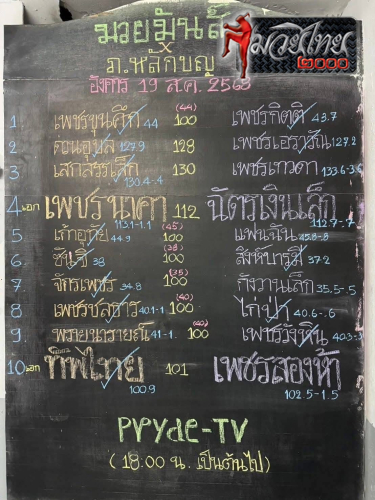 มวยมันส์
มวยไทย
๒๐๐๐
X
ภ.หลักบุญ
อังคาร 19 ส.ค. 2568
1 เพชรขุนศึก 44 (44) 100 เพชรกิตติ 43.7
2 ดอนอุบล 127.9 128 เพชรเอราวัณ 127.2
3 เสกสรรเล็ก 130.4-.4 130 เพชรเทวดา 133.6-3.6
4 เอก เพชรนาคา 113.1-1.1 112 ฉัตรเงินเล็ก 112.7-.7
5 เก้าอุทัย 44.9 (45) 100 แฟนฉัน
6 ซันชิ 38 (38) 100 สิงห์บารมี 37.2
7 จักรเพชร 34.8 (35) 100 กังวานเล็ก 35.5-.5
8 เพชรชลธาร 40.1-.1 (40) 100 ไก่ป่า 40.6-.6
9 พรายนารายณ์ 41-1. (40) 100 เพชรวังหิน
10 เอก ทิพไทย 100.9 101 เพชรสองห้า 102.5-1.5
PPYDE-TV
(18:00 น. เป็นต้นไป)